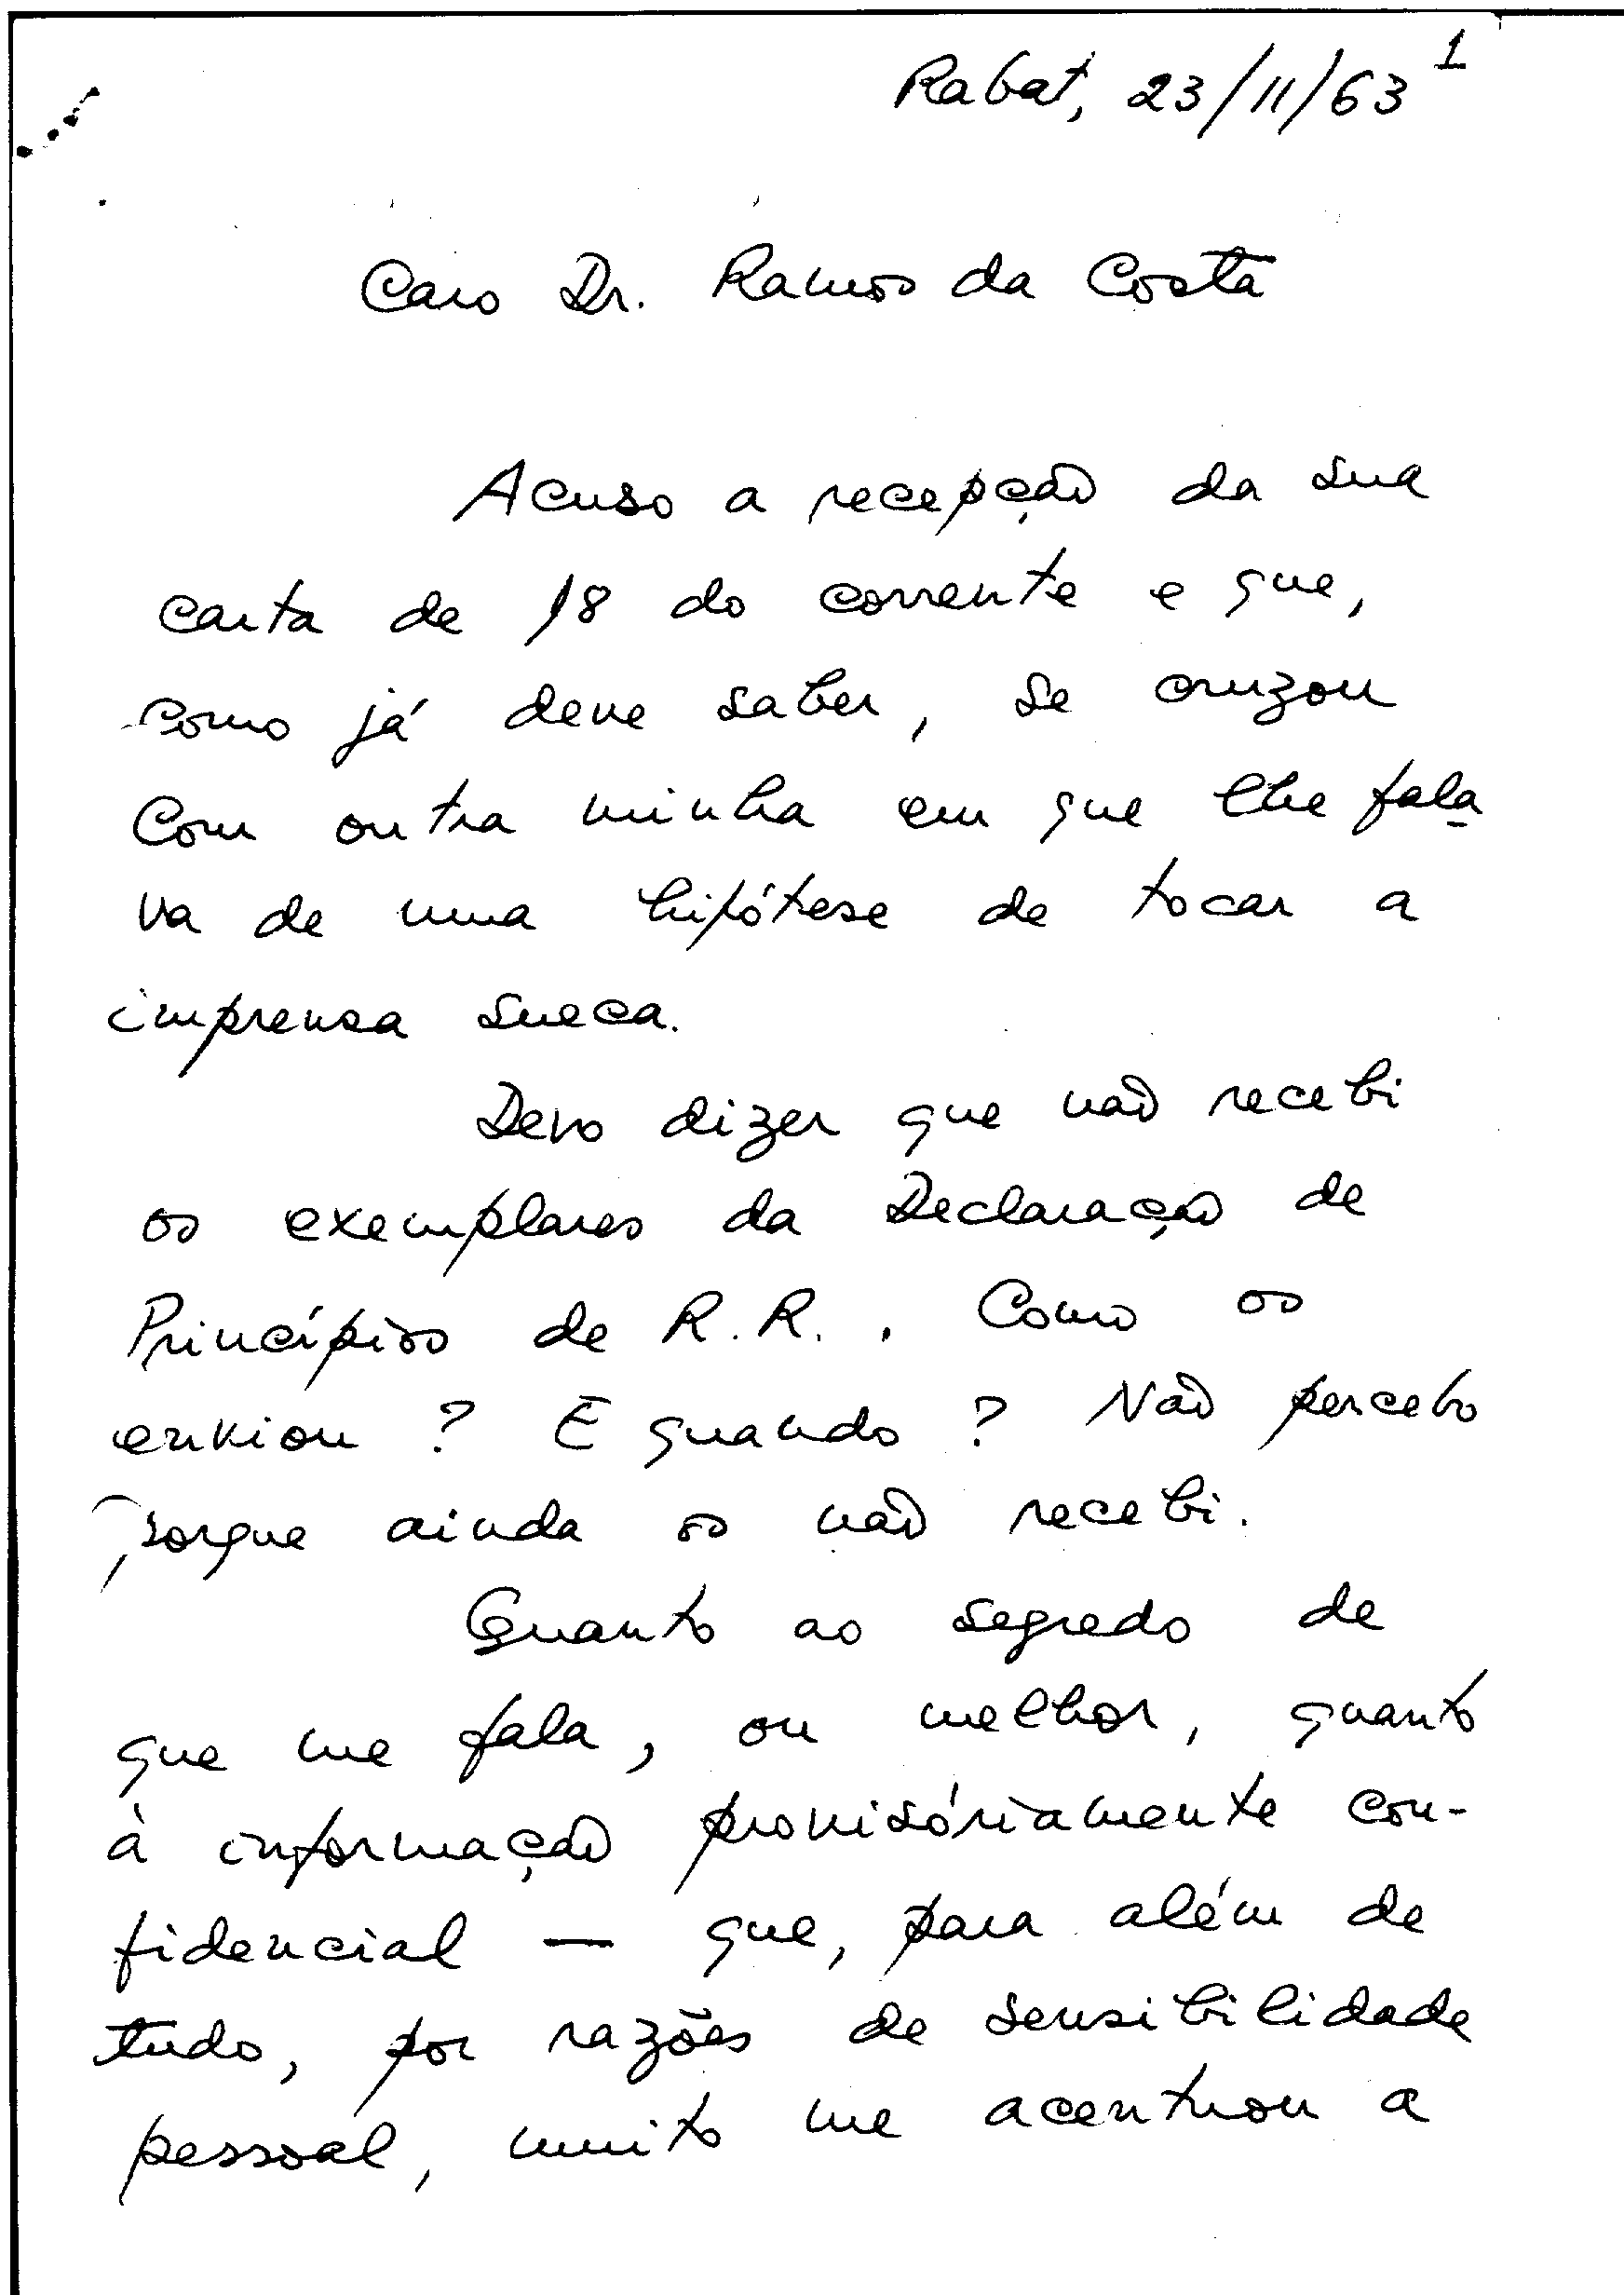 Rabat, 23/11/63 1
Caro Dr. Ramos da Costa
Acuso a recepção da sua
carta de 18 do corrente e que,
como já deve saber, se cruzou
com outra minha em que lhe fala
va de uma hipótese de tocar a
imprensa sueca.
Devo dizer que não recebi
os exemplares da Declaração de
Princípios de R.R.. Como os
enviou? E quando? Não percebo
porque ainda os não recebi.
Quanto ao segredo de
que me fala, ou melhor, quanto
à informação provisóriamente con-
fidencial — que, para além de
tudo, por razões de sensibilidade
pessoal, muito me acentuou a